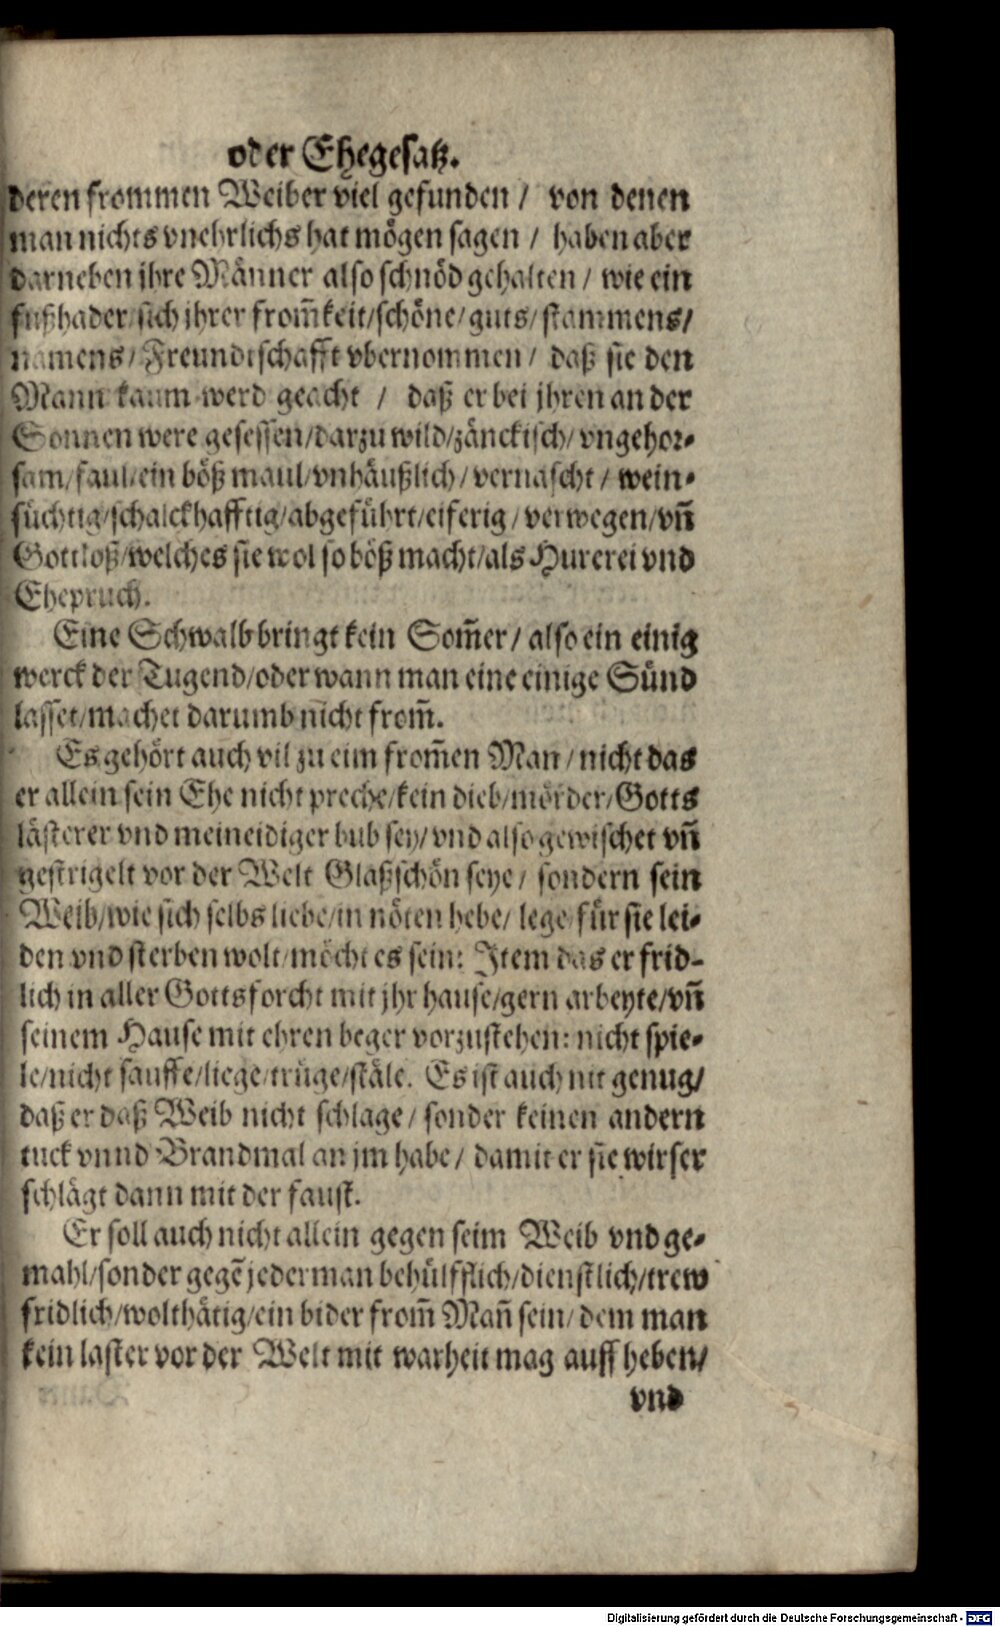 oder Ehegesatz.
deren frommen Weiber viel gefunden / von denen
man nichts vnehrlichs hat mögen sagen / haben aber
darneben jhre Männer also schnöd gehalten / wie ein
fußhader / sich jhrer from̄keit/schöne/guts/stammens/
namens/Freundtschafft vbernommen / daß sie den
Mann kaum werd geacht / daß er bei jhren an der
Sonnen were gesessen/darzu wild/zänckisch/vngehor⸗
sam/faul/ein böß maul/vnhäußlich/vernascht/wein⸗
süchtig/schalckhafftig/abgeführt/eiferig/verwegen/vn̄
Gottloß/welches sie wol so böß macht/als Hurerei vnd
Ehepruch.
Eine Schwalb bringt kein Som̄er/also ein einig
werck der Tugend/oder wann man eine einige Sünd
lasset/machet darumb nicht from̄.
Es gehört auch vil zu eim from̄en Man/nicht das
er allein sein Ehe nicht preche/kein dieb/mörder/Gotts
lästerer vnd meineidiger bub sey/vnd also gewischet vn̄
gestrigelt vor der Welt Glaßschön seye/ sondern sein
Weib/wie sich selbs liebe/in nöten hebe/ lege für sie lei⸗
den vnd sterben wolt/möcht es sein: Item das er frid-
lich in aller Gottsforcht mit jhr hause/gern arbeyte/vn̄
seinem Hause mit ehren beger vorzustehen: nicht spie⸗
le/nicht sauffe/liege/trüge/stäle. Es ist auch nit genug/
daß er daß Weib nicht schlage/ sonder keinen andern
tuck vnnd Brandmal an jm habe/ damit er sie wirser
schlägt dann mit der faust.
Er soll auch nicht allein gegen seim Weib vnd ge⸗
mahl/sonder gegē jederman behülfflich/dienstlich/trew
fridlich/wolthätig/ein bider from̄ Man̄ sein/dem man
kein laster vor der Welt mit warheit mag auff heben/
vnd
Digitalisierung gefördert durch die Deutsche Forschungsgemeinschaft - DFG